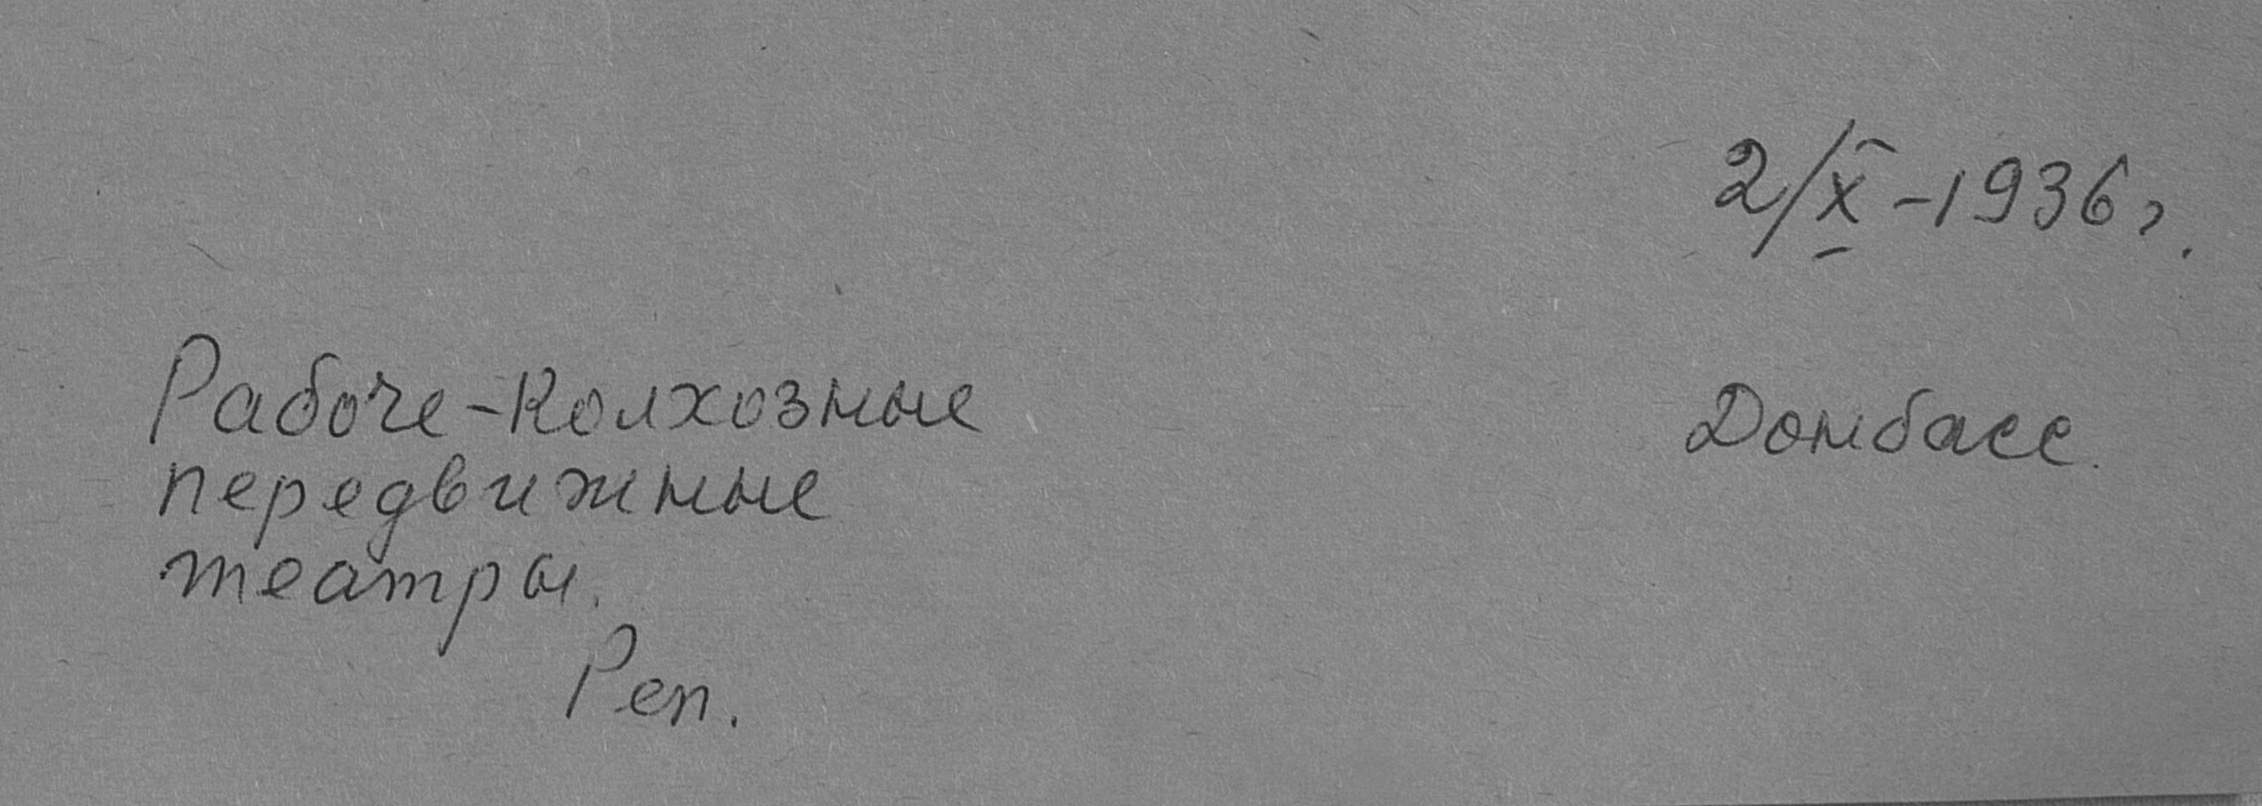 2/X-1936 г.
Рабоче-колхозные
Донбасс.
передвижные
театры.
Реп.